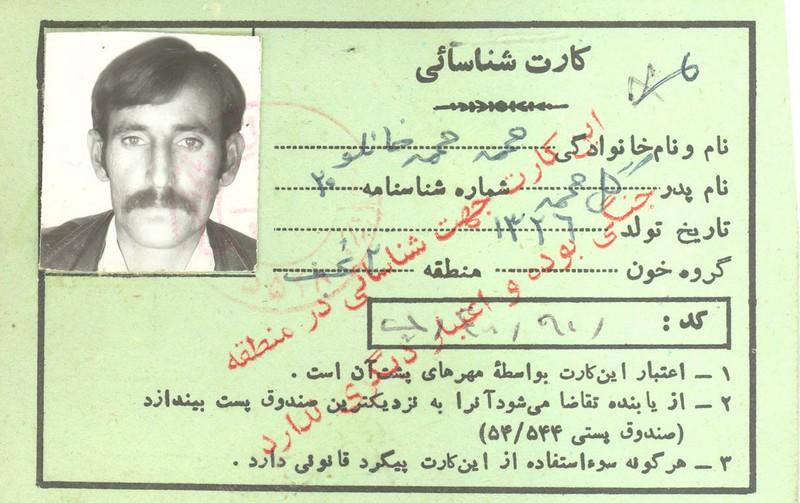 کارت شناسائی
نام و نام‌خانوادگی محمد محمد خانلو
نام پدر گل محمد شماره شناسنامه ۲۰
تاریخ تولد ۱۳۲۶
گروه خون منطقه
کد :
۱ ـ اعتبار این‌کارت بواسطهٔ مهرهای پشت‌آن است .
۲ ـ از یابنده تقاضا می‌شود آنرا به نزدیکترین صندوق پست بیندازد
(صندوق پستی ۵۴/۵۴۴)
۳ ـ هرگونه سوءاستفاده از این‌کارت پیگرد قانونی دارد .
این کارت جهت شناسائی در منطقه
جنگی بوده و اعتبار دیگری ندارد